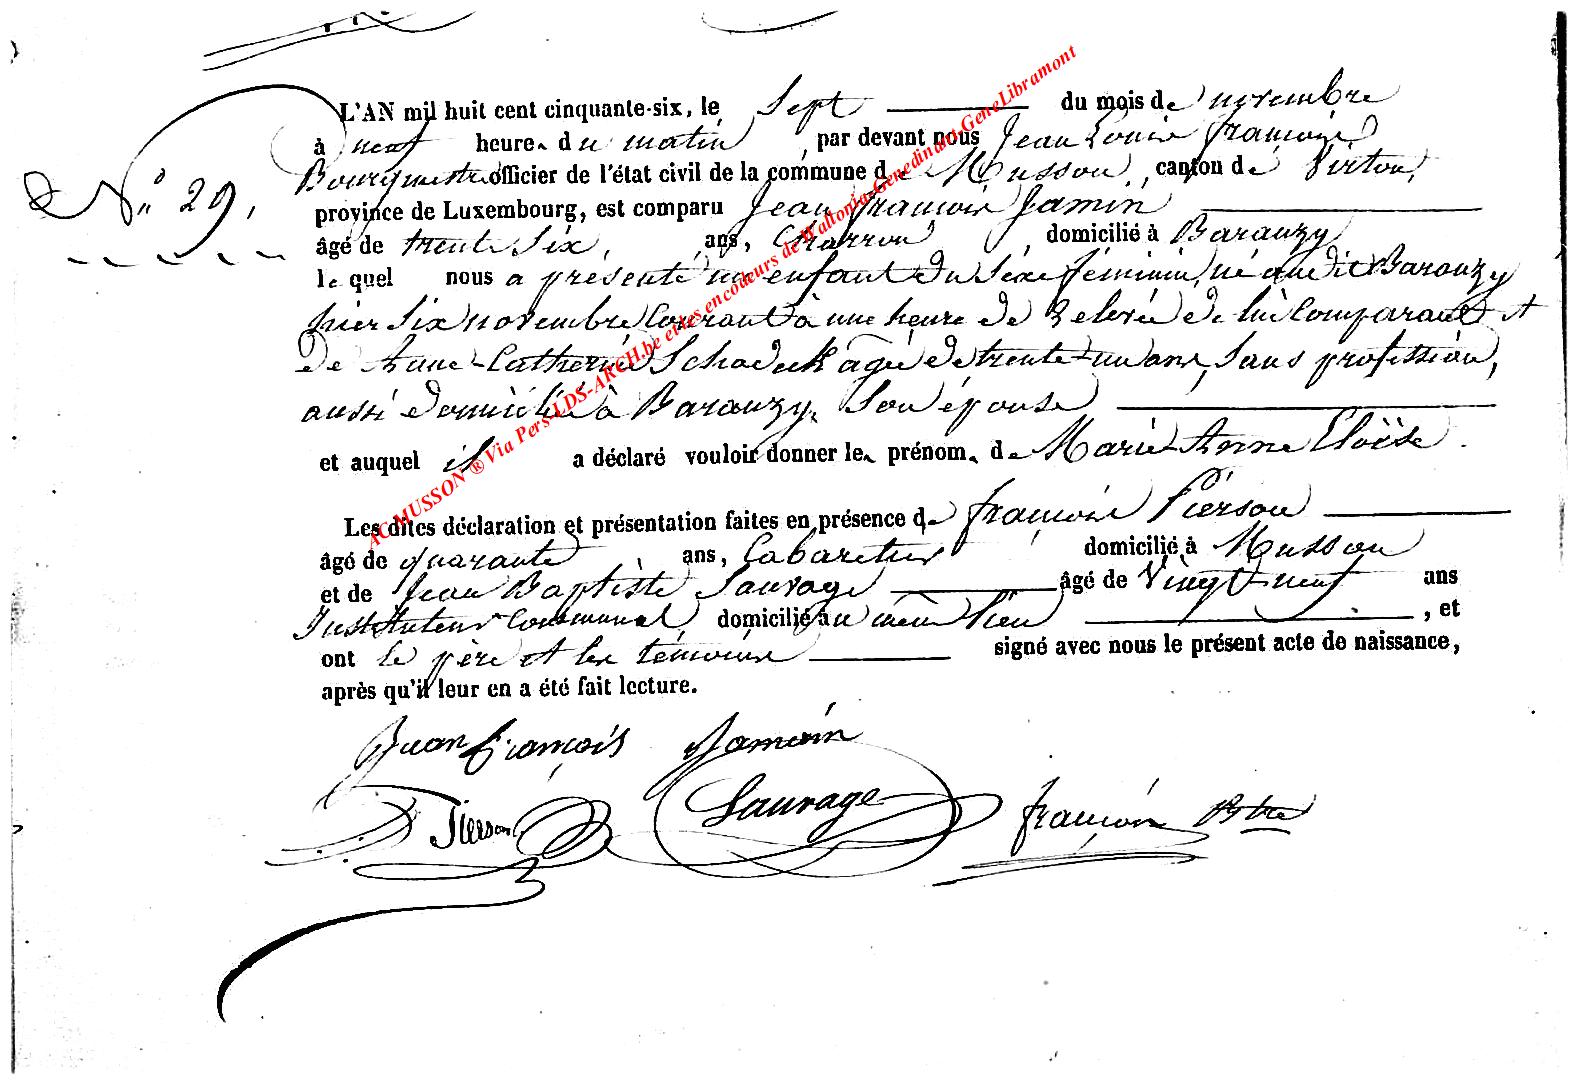 L'AN mil huit cent cinquante-six, le Sept du mois de novembre
à neuf heures du matin par devant nous Jean Louis françois
Bourgmestre officier de l'état civil de la commune de Musson, canton de Virton,
N° 29,
province de Luxembourg, est comparu Jean françois Jamin
âgé de trente Six, ans, Charron domicilié à Baranzy
lequel nous a présenté un enfant du Sexe féminin, né audit Baranzy
hier Six novembre Courant à une heure de relevée de lui Comparant et
de Anne-Catherine Schadeck agée de trente-un ans, Sans profession,
aussi domicilié à Baranzy, Son épouse
et auquel il a déclaré vouloir donner les prénoms de Marie-Anne Eloïse.
Les dites déclaration et présentation faites en présence de françois Pierson
âgé de quarante ans, Cabaretier domicilié à Musson
et de Jean Baptiste Sauvage âgé de Vingt neuf ans
Instituteur Communal, domicilié au même lieu, et
ont le père et les témoins signé avec nous le présent acte de naissance,
après qu'il leur en a été fait lecture.
Jean françois Jamin
Pierson Sauvage françois
AC MUSSON ® Via Pers-LDS-ARCH.be et les encodeurs de Wallonia-Genedinant-GeneLibramont